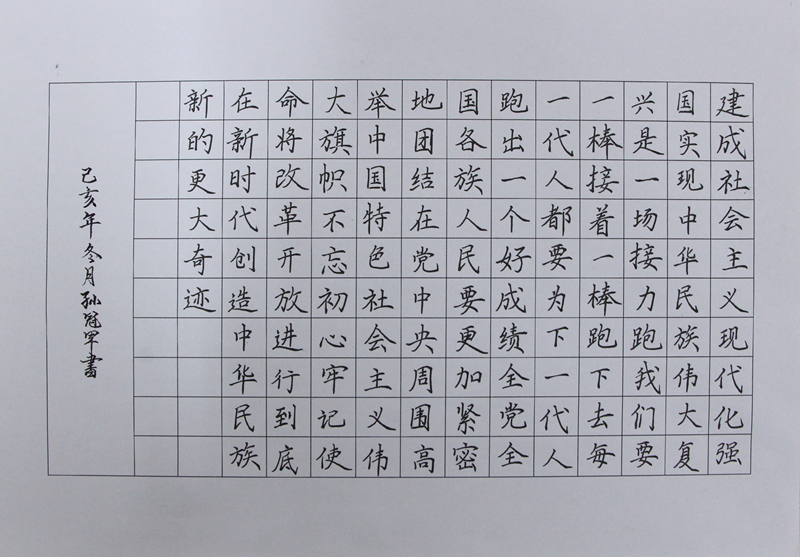 建成社会主义现代化强
国实现中华民族伟大复
兴是一场接力跑我们要
一棒接着一棒跑下去每
一代人都要为下一代人
跑出一个好成绩全党全
国各族人民要更加紧密
地团结在党中央周围高
举中国特色社会主义伟
大旗帜不忘初心牢记使
命将改革开放进行到底
在新时代创造中华民族
新的更大奇迹
己亥年冬月孙冠军書